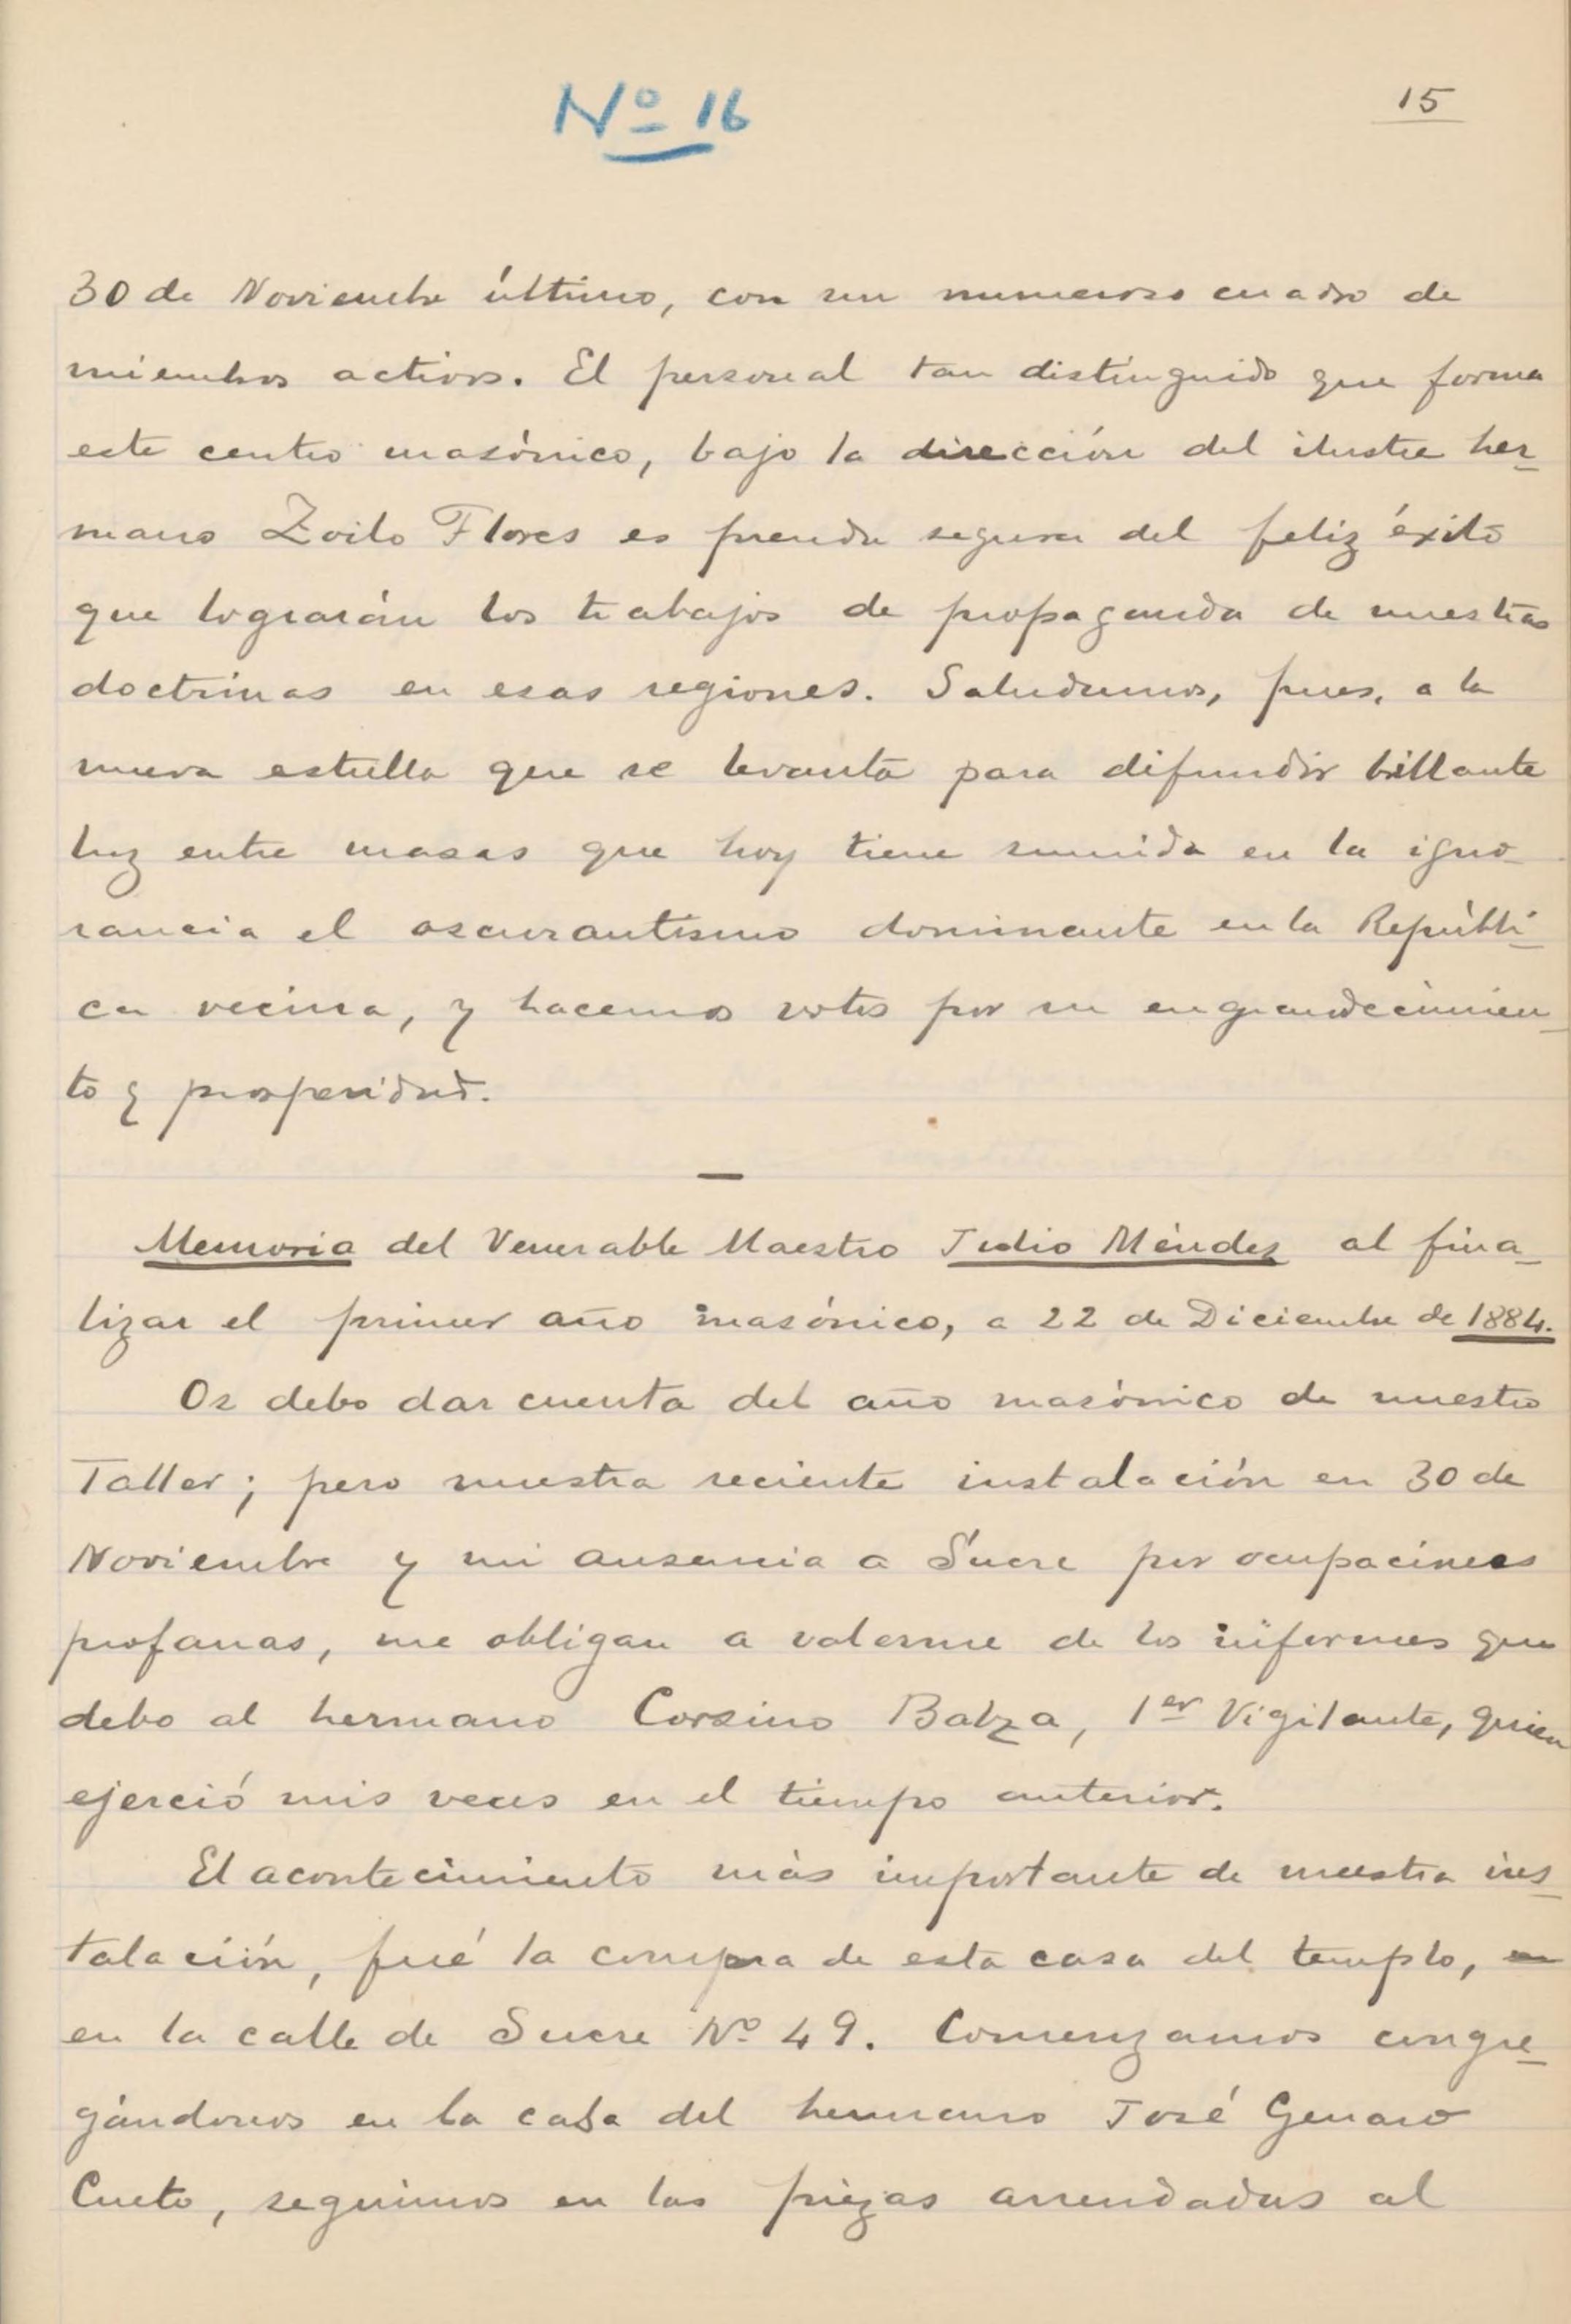 Nº 16
15
30 de Noviembre último, con un numeroso cuadro de
miembros activos. El personal tan distinguido que forma
este centro masónico, bajo la dirección del ilustre her-
mano Zoilo Flores es prenda segura del feliz éxito
que lograrán los trabajos de propaganda de nuestras
doctrinas en esas regiones. Saludemos, pues, a la
nueva estrella que se levanta para difundir brillante
luz entre masas que hoy tiene sumida en la igno-
rancia el oscurantismo dominante en la Repúbli-
ca vecina, y hacemos votos por su engrandecimien-
to y prosperidad.
—
Memoria del Venerable Maestro Julio Méndez al fina-
lizar el primer año masónico, a 22 de Diciembre de 1884.
Os debo dar cuenta del año masónico de nuestro
Taller; pero nuestra reciente instalación en 30 de
Noviembre y mi ausencia a Sucre por ocupaciones
profanas, me obligan a valerme de los informes que
debo al hermano Corsino Balza, 1er Vigilante, quien
ejerció mis veces en el tiempo anterior.
El acontecimiento más importante de nuestra ins-
talación, fué la compra de esta casa del templo,
en la calle de Sucre Nº 49. Comenzamos congre-
gándonos en la casa del hermano José Genaro
Cueto, seguimos en las piezas arrendadas al